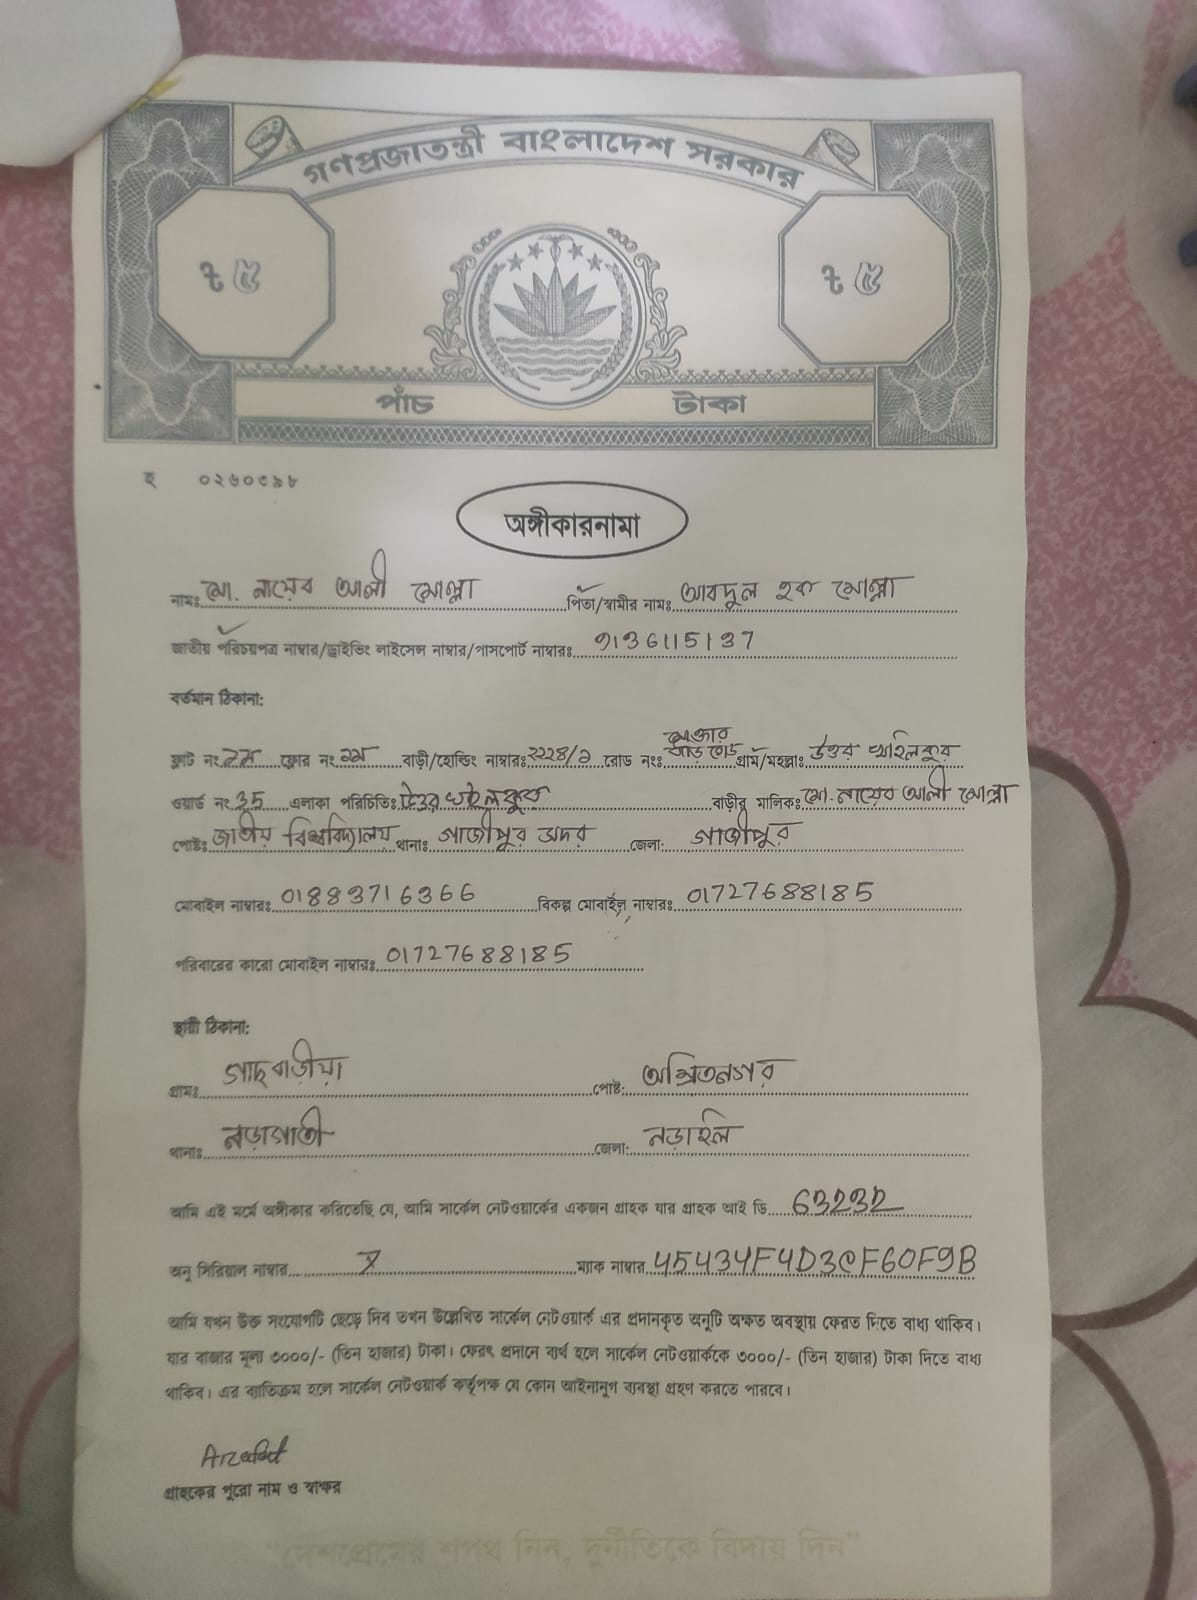 গণপ্রজাতন্ত্রী বাংলাদেশ সরকার
৳ ৫ ৳ ৫
পাঁচ টাকা
হ ০২৬০৩৯৮
অঙ্গীকারনামা
নামঃ মো. নায়েব আলী মোল্লা পিতা/স্বামীর নামঃ আবদুল হক মোল্লা
জাতীয় পরিচয়পত্র নাম্বার/ড্রাইভিং লাইসেন্স নাম্বার/পাসপোর্ট নাম্বারঃ 9136115137
বর্তমান ঠিকানা:
ফ্লাট নং ফ্লোর নং বাড়ী/হোল্ডিং নাম্বারঃ রোড নংঃ মোক্তার বাড়ি রোড গ্রাম/মহল্লাঃ উত্তর খাইলকুর
ওয়ার্ড নং 35 এলাকা পরিচিতিঃ উত্তর খাইলকুর বাড়ীর মালিকঃ মো. নায়েব আলী মোল্লা
পোষ্টঃ জাতীয় বিশ্ববিদ্যালয় থানাঃ গাজীপুর সদর জেলা: গাজীপুর
মোবাইল নাম্বারঃ 01883716366 বিকল্প মোবাইল নাম্বারঃ 01727688185
পরিবারের কারো মোবাইল নাম্বারঃ 01727688185
স্থায়ী ঠিকানা:
গ্রামঃ গাছবাড়ীয়া পোষ্ট:
থানাঃ নড়াগাতী জেলা: নড়াইল
আমি এই মর্মে অঙ্গীকার করিতেছি যে, আমি সার্কেল নেটওয়ার্কের একজন গ্রাহক যার গ্রাহক আই ডি 63232
অনু সিরিয়াল নাম্বার X ম্যাক নাম্বার 45434F4D3CF60F9B
আমি যখন উক্ত সংযোগটি ছেড়ে দিব তখন উল্লেখিত সার্কেল নেটওয়ার্ক এর প্রদানকৃত অনুটি অক্ষত অবস্থায় ফেরত দিতে বাধ্য থাকিব।
যার বাজার মূল্য ৩০০০/- (তিন হাজার) টাকা। ফেরৎ প্রদানে ব্যর্থ হলে সার্কেল নেটওয়ার্ককে ৩০০০/- (তিন হাজার) টাকা দিতে বাধ্য
থাকিব। এর ব্যতিক্রম হলে সার্কেল নেটওয়ার্ক কর্তৃপক্ষ যে কোন আইনানুগ ব্যবস্থা গ্রহণ করতে পারবে।
Arafat
গ্রাহকের পুরো নাম ও স্বাক্ষর
“দেশপ্রেমের শপথ নিন, দুর্নীতিকে বিদায় দিন”